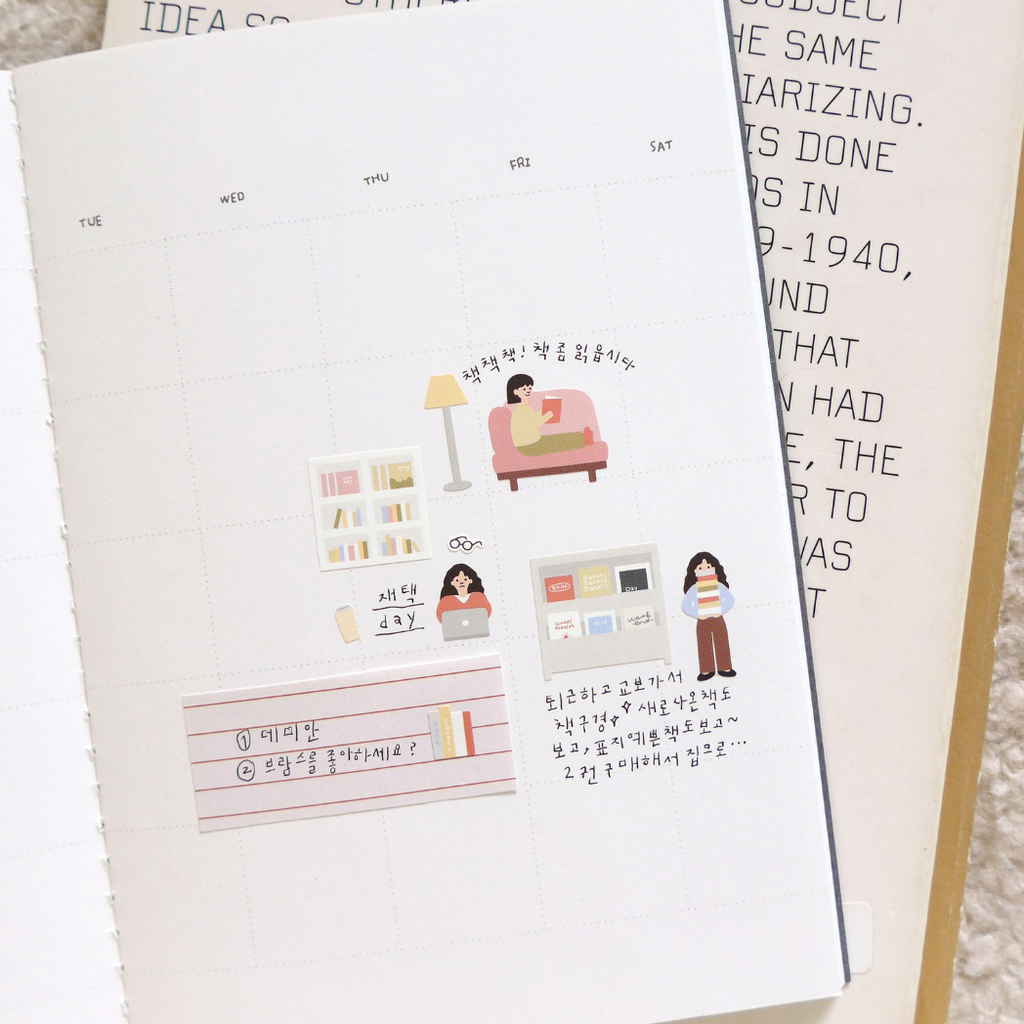 IDEA SO
SUBJECT
THE SAME
IARIZING.
IS DONE
DS IN
9-1940,
UND
THAT
N HAD
E, THE
R TO
WAS
T
TUE
WED
THU
FRI
SAT
책책책! 책 좀 읽읍시다
재택
day
BOOK
DAY
SUNDAY
WEEK
END
퇴근하고 교보가서
책구경 새로나온책도
보고, 표지예쁜책도보고~
2권구매해서 집으로...
① 데미안
② 브람스를 좋아하세요?